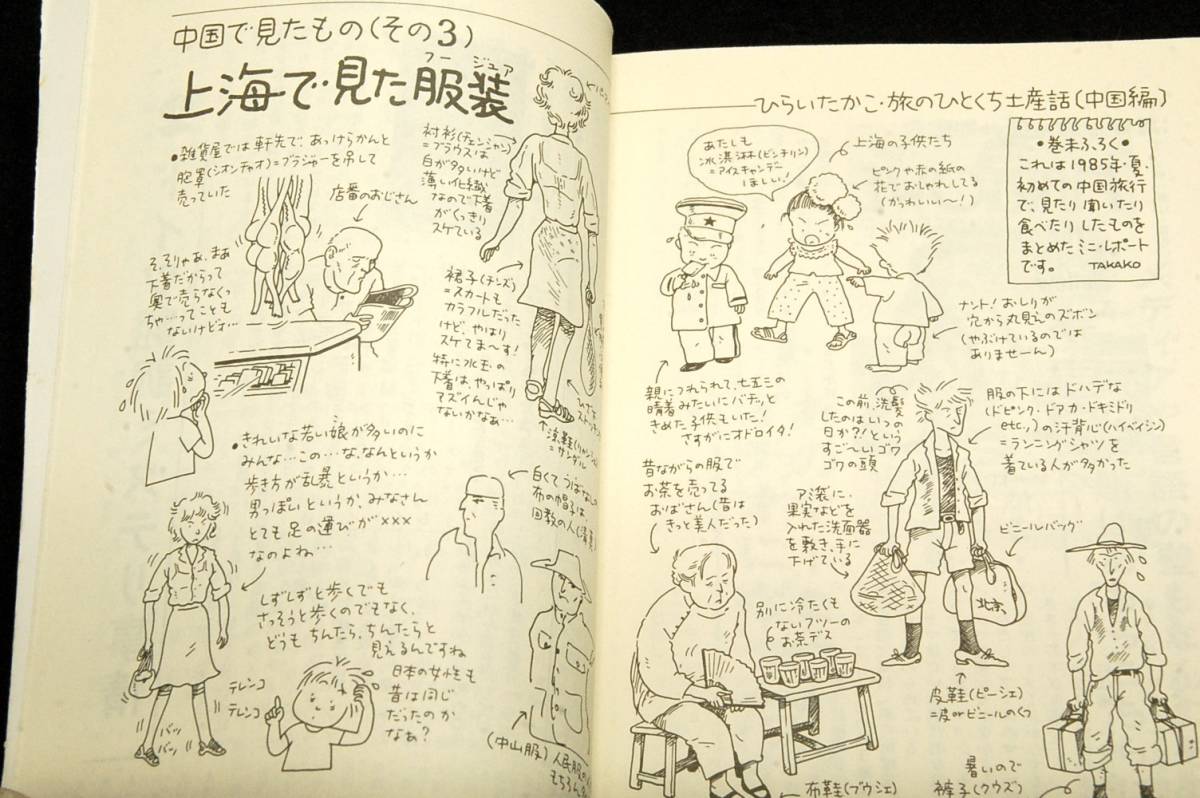 中国で見たもの(その3)
フー ジュア
上海で見た服装
・雑貨屋では軒先で、あっけらかんと
胞罩(シオンチャオ)=ブラジャーを吊して
売っていた
店番のおじさん
そ、そりゃあ、まあ
下着だからって
奥で売らなくっ
ちゃ…ってことも
ないけどォ…
衬衫(チェンシャン)
=ブラウスは
白が多いけど
薄い化繊
なので下着
がくっきり
スケている
裙子(チンズ)
=スカートも
カラフルだった
けど、やはり
スケてま〜す!
特に水玉の
下着は、やっぱり
マズイんじゃ
ないかなぁ…
サンダル
・きれいな若い娘が多いのに
みんな…この…な、なんというか
歩き方が乱暴というか…
男っぽいというか、みなさん
とても足の運びが×××
なのよね…
しずしずと歩くでも
さっそうと歩くのでもなく、
どうも ちんたら、ちんたらと
見えるんですね
日本の女性も
昔は同じ
だったのか
なぁ?
テレンコ
テレンコ
バッ
バッ
白くてつばなしの
布の帽子は
回教の人
(中山服)人民服
もちろん
ひらいたかこ・旅のひとくち土産話(中国編)
・巻末ふろく・
これは1985年・夏、
初めての中国旅行
で、見たり 聞いたり
食べたり したものを
まとめた ミニ・レポート
です。 TAKAKO
あたしも
冰淇淋(ピンチリン)
=アイスキャンデー
ほしい!
上海の子供たち
ピンクや赤の紙の
花でおしゃれしてる
(かっわいい〜!)
ナント!おしりが
穴から丸見えのズボン
(やぶけているのでは
ありませーん)
親につれられて、七五三の
晴着みたいにバチッと
きめた子供もいた!
さすがにオドロイタ!
この前、洗髪
したのはいつの
日か?!という
すご〜いゴワ
ゴワの頭
服の下にはドハデな
(ドピンク・ドアカ・ドキミドリ
etc.,)の汗背心(ハイベイジン)
=ランニングシャツを
着ている人が多かった
昔ながらの服で
お茶を売ってる
おばさん(昔は
きっと美人だった)
アミ袋に、
果実などを
入れた洗面器
を敷き、手に
下げている
ビニールバッグ
北京
別に冷たくも
ないフツーの
お茶デス
皮鞋(ピーシェ)
=皮orビニールのくつ
布鞋(ブウシェ)
暑いので
裤子(クウズ)